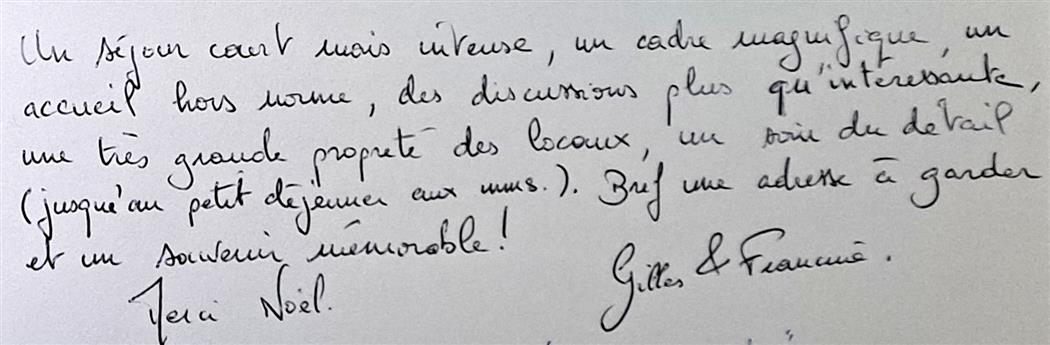 Un séjour court mais intense, un cadre magnifique, un
accueil hors norme, des discussions plus qu'intéressante,
une très grande propreté des locaux, un soin du détail
(jusqu'au petit déjeuner aux mms.). Bref une adresse à garder
et un souvenir mémorable!
Gilles & Francine.
Merci Noël.